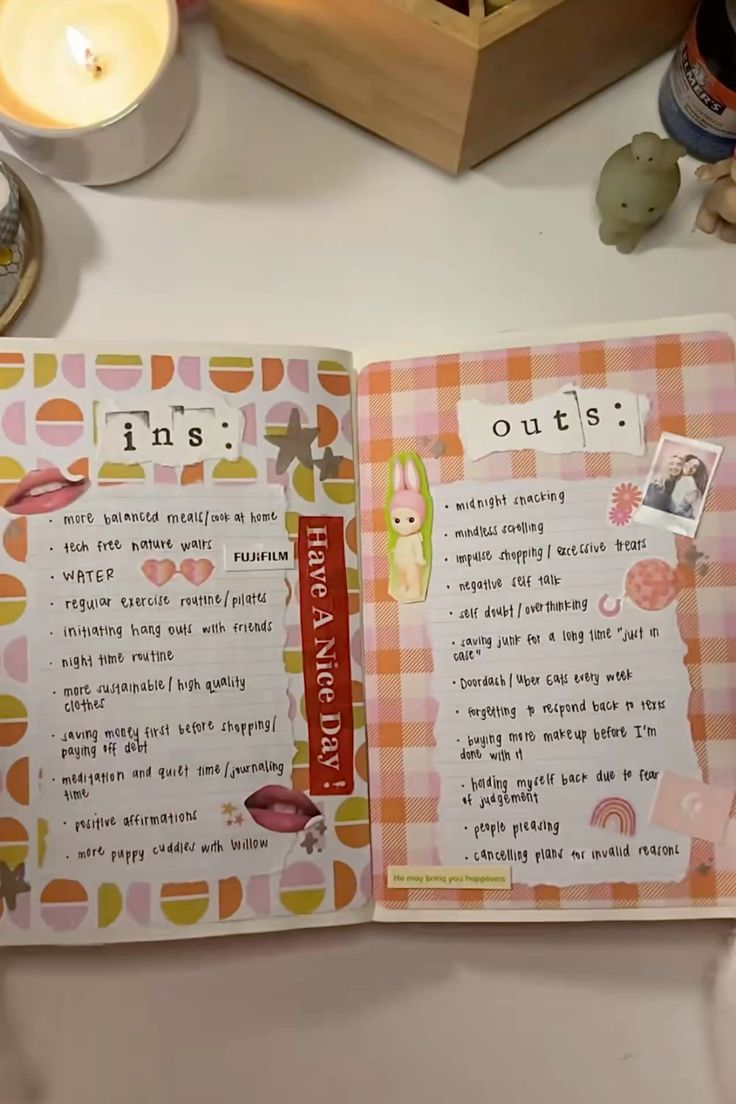 ELMER'S
ins:
• more balanced meals/cook at home
• tech free nature walks
• WATER
FUJIFILM
• regular exercise routine/pilates
• initiating hang outs with friends
• night time routine
• more sustainable/high quality
clothes
• saving money first before shopping/
paying off debt
• meditation and quiet time/journaling
time
• positive affirmations
• more puppy cuddles with Willow
Have A Nice Day!
outs:
• midnight snacking
• mindless scrolling
• impulse shopping/excessive treats
• negative self talk
• self doubt/overthinking
• saving junk for a long time "just in
case"
• Doordash/Uber Eats every week
• forgetting to respond back to texts
• buying more makeup before I'm
done with it
• holding myself back due to fear
of judgement
• people pleasing
• cancelling plans for invalid reasons
He may bring you happiness.